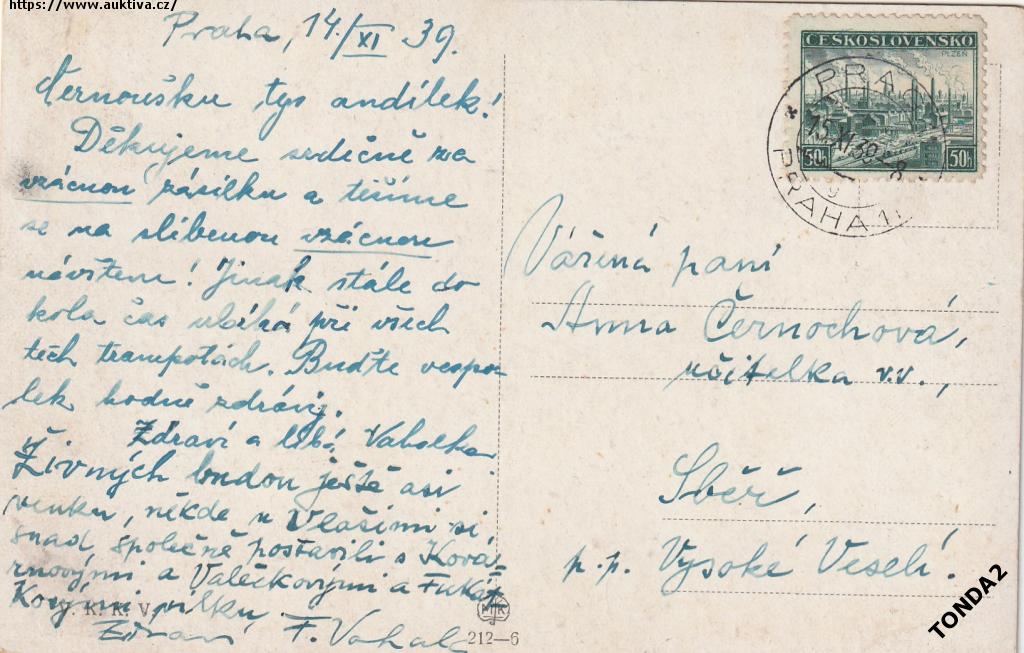 https://www.auktiva.cz/
Praha, 14./XI 39.
Černoušku, tys andílek!
Děkujeme srdečně za
vzácnou zásilku a těšíme
se na slíbenou vzácnou
návštěvu! Jinak stále do
kola čas ubíhá při všech
těch trampotách. Buďte vespo-
lek hodně zdrávi.
Zdraví a líbá
Živných budou ještě asi
venku, někde u Vlašimi si,
snad, společně postavili s Kova-
a Valečkovými a
pilku,
F.
V. K. K. V.
212—6
ČESKOSLOVENSKO
PLZEŇ
50h 50h
PRAHA 1
15.XI.39
Vážená paní
Anna Černochová,
učitelka v.v.,
Sběř,
p.p. Vysoké Veselí.
TONDA2